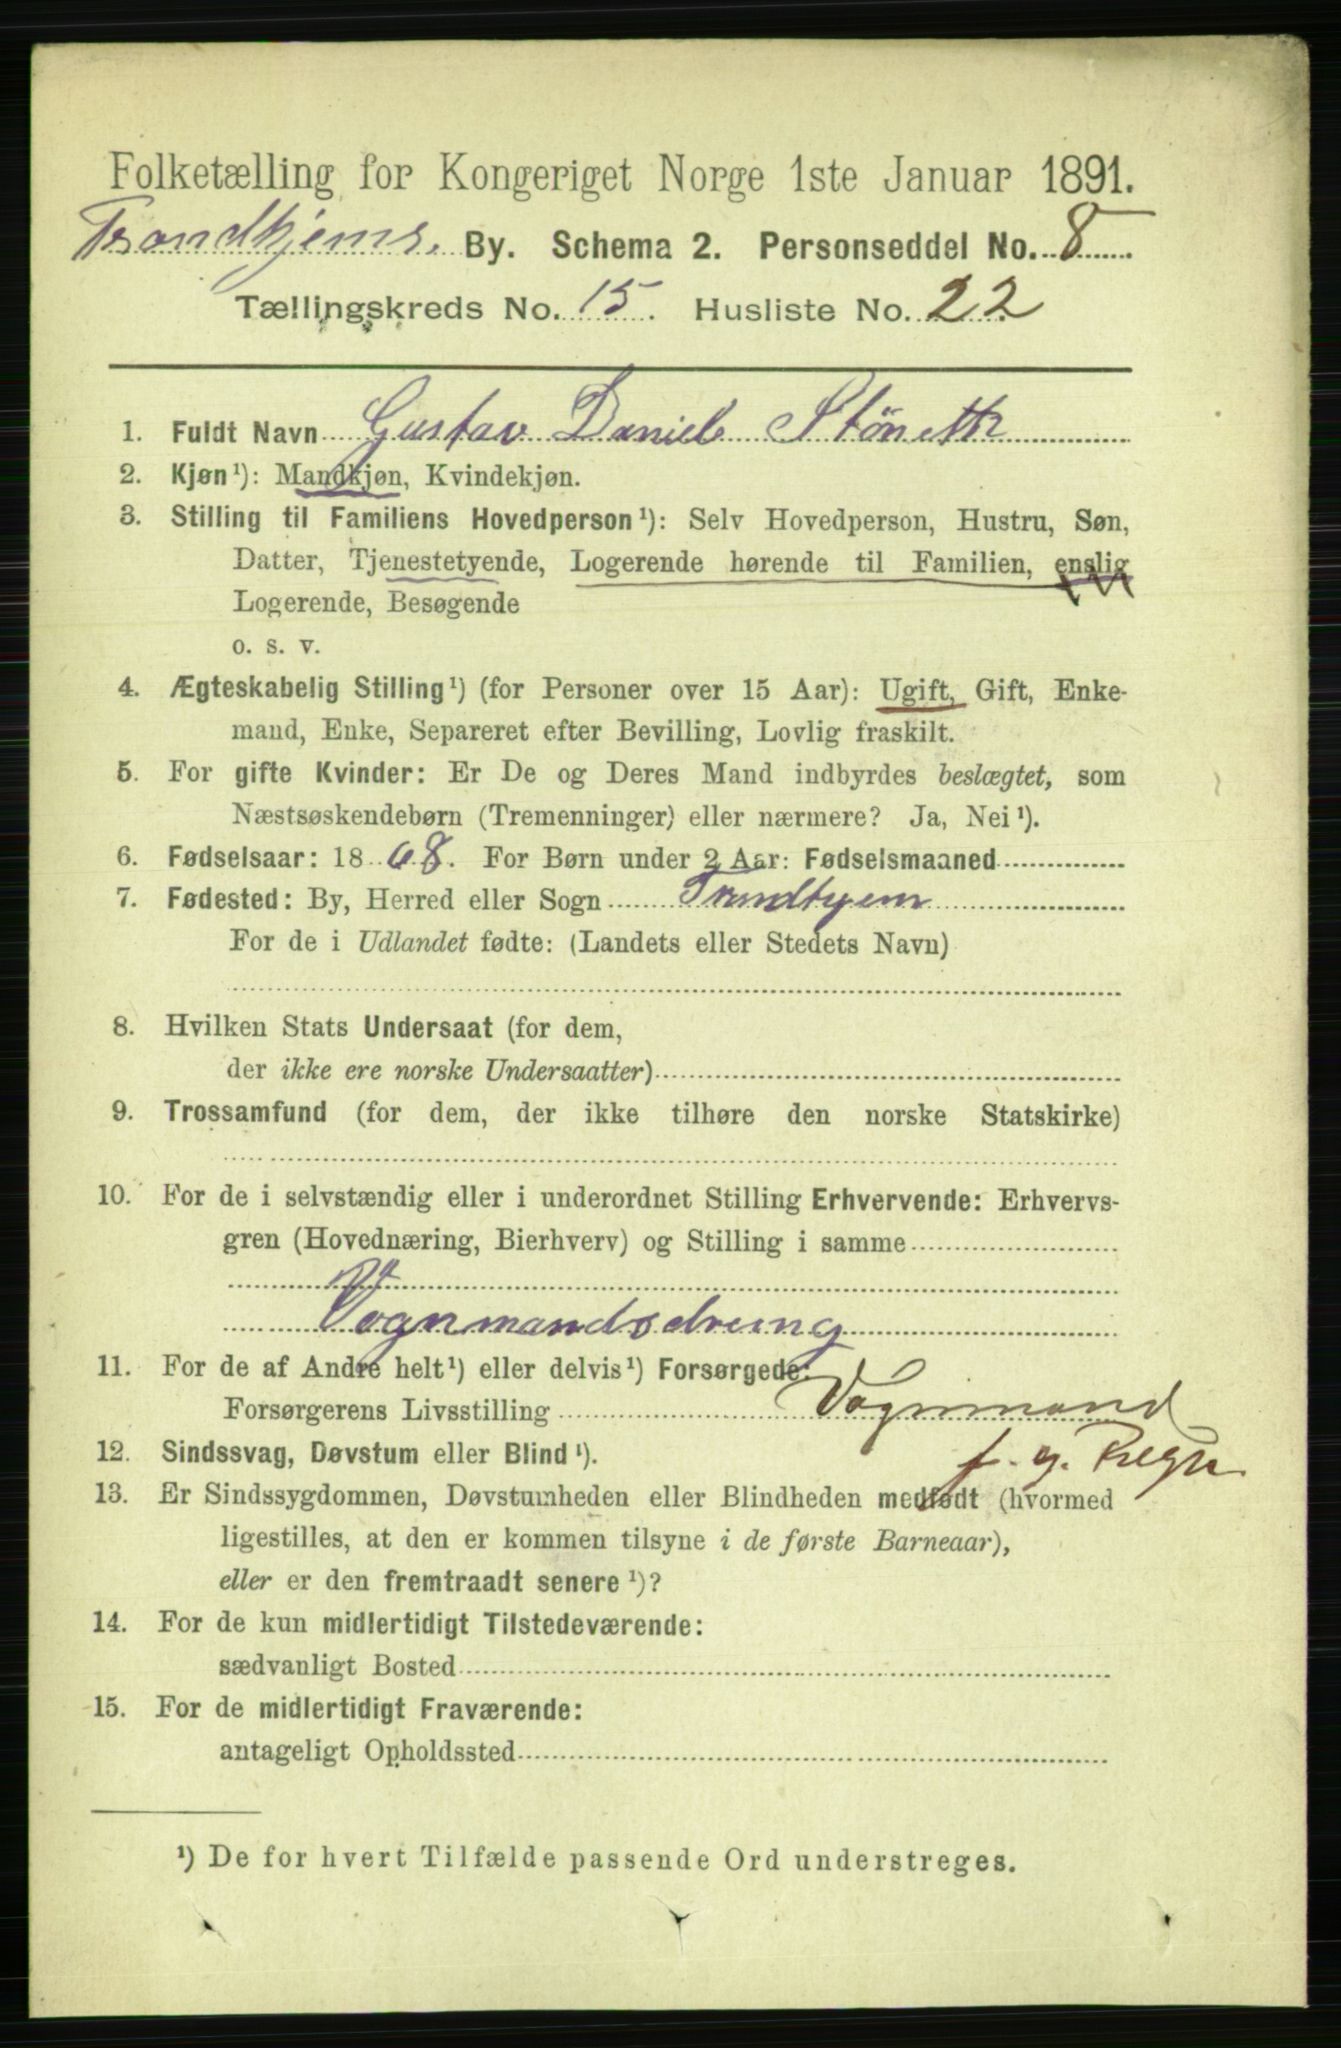 Folketælling for Kongeriget Norge 1ste Januar 1891.
Trondhjems By. Schema 2. Personseddel No. 8
Tællingskreds No. 15. Husliste No. 22
1. Fuldt Navn Gustav Daniel
2. Kjøn¹): Mandkjøn, Kvindekjøn.
3. Stilling til Familiens Hovedperson¹): Selv Hovedperson, Hustru, Søn,
Datter, Tjenestetyende, Logerende hørende til Familien, enslig
Logerende, Besøgende
o. s. v.
4. Ægteskabelig Stilling¹) (for Personer over 15 Aar): Ugift, Gift, Enke-
mand, Enke, Separeret efter Bevilling, Lovlig fraskilt.
5. For gifte Kvinder: Er De og Deres Mand indbyrdes beslægtet, som
Næstsøskendebørn (Tremenninger) eller nærmere? Ja, Nei¹).
6. Fødselsaar: 1868. For Børn under 2 Aar: Fødselsmaaned
7. Fødested: By, Herred eller Sogn Trondhjem
For de i Udlandet fødte: (Landets eller Stedets Navn)
8. Hvilken Stats Undersaat (for dem,
der ikke ere norske Undersaatter)
9. Trossamfund (for dem, der ikke tilhøre den norske Statskirke)
10. For de i selvstændig eller i underordnet Stilling Erhvervende: Erhvervs-
gren (Hovednæring, Bierhverv) og Stilling i samme
Vognmandsdreng
11. For de af Andre helt¹) eller delvis¹) Forsørgede:
Forsørgerens Livsstilling Vognmand
12. Sindssvag, Døvstum eller Blind¹).
13. Er Sindssygdommen, Døvstumheden eller Blindheden medfødt (hvormed
ligestilles, at den er kommen tilsyne i de første Barneaar),
eller er den fremtraadt senere¹)?
14. For de kun midlertidigt Tilstedeværende:
sædvanligt Bosted
15. For de midlertidigt Fraværende:
antageligt Opholdssted
¹) De for hvert Tilfælde passende Ord understreges.